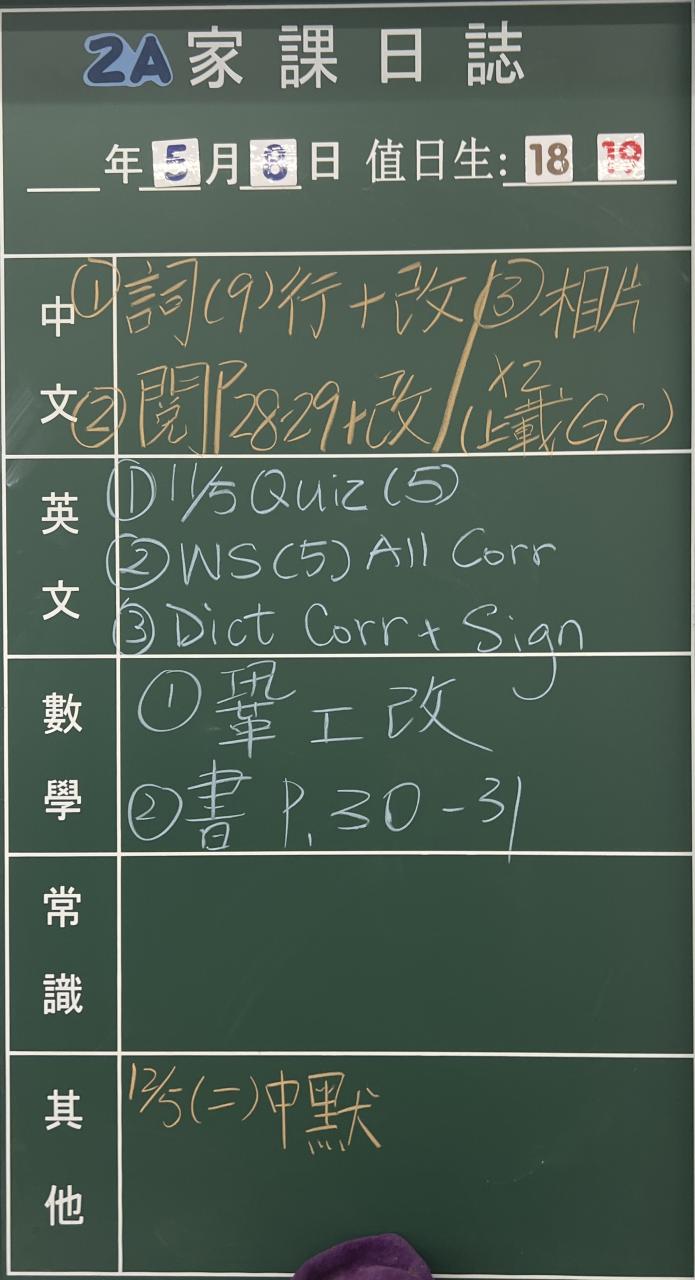 2A 家課日誌
年 5 月 8 日 值日生: 18 19
中文
① 詞(9)行+改 / ③ 相片
② 閱P28-29+改 / X2
(上載GC)
英文
① 11/5 Quiz (5)
② WS(5) All Corr
③ Dict Corr + Sign
數學
① 鞏工改
② 書 P.30-31
常識
其他
12/5(二)中默